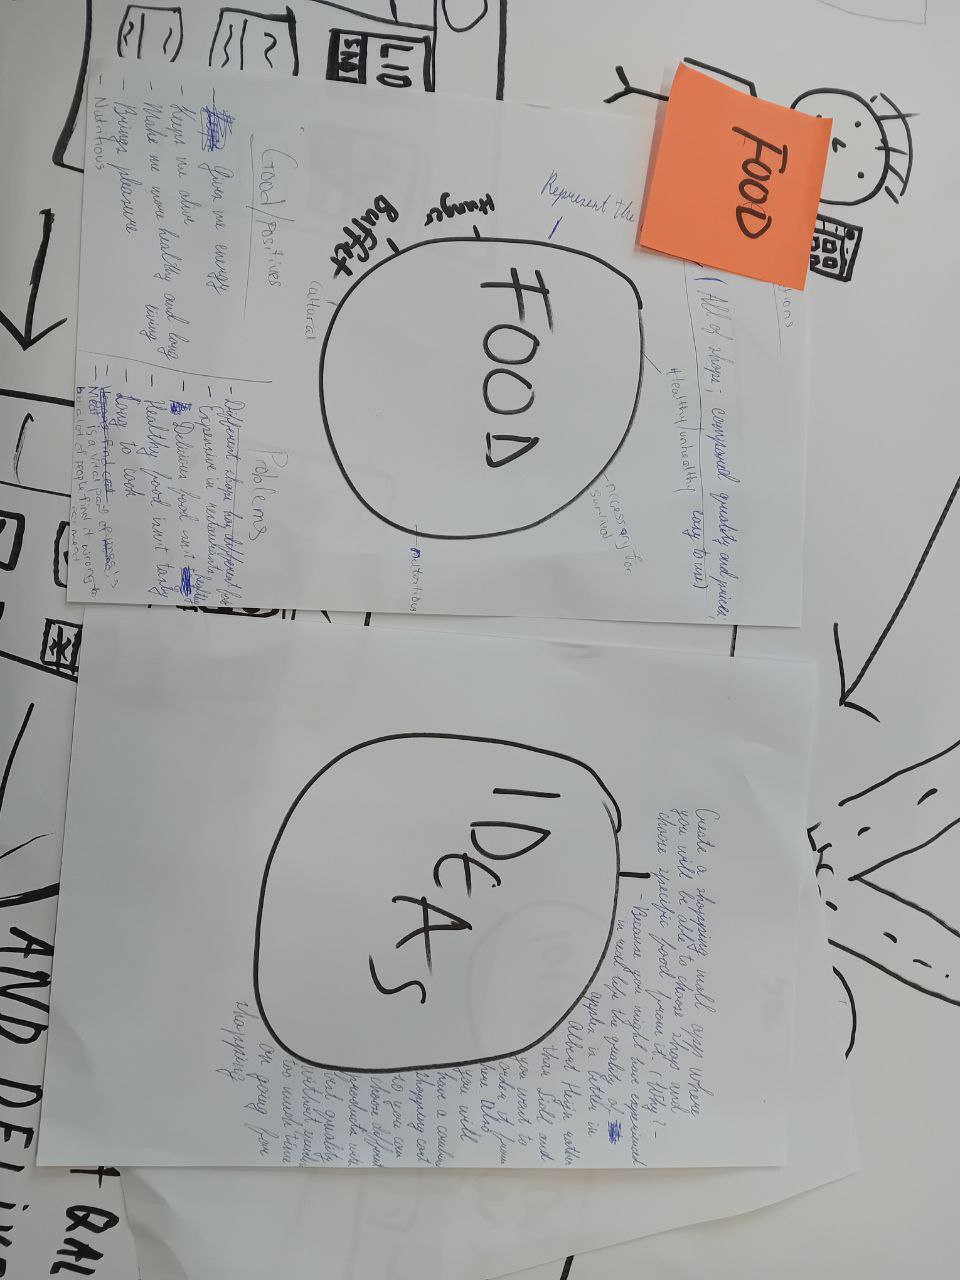 FOOD
FOOD
Represent the
Hunger
Buffet
Cultural
Healthy/unhealthy
necessary for
survival
nutritious
All of shops; compared quality and prices,
easy to use)
Good/Positives
- Gives me energy
- Keeps me alive
- Make me more healthy and long
living
- Brings pleasure
- Nutritious
Problems
- Different shops has different
- Expensive in restaurants
- Delicious food isn't
- Healthy food isn't tasty
- Long to cook
- Meat is a vital part of
but a lot of people find it wrong to
IDEAS
Create a shopping mall app where
you will be able to choose shop and
choose specific food from it. (Why? -
- Because you might have experienced
in real life the quality of
apples is better in
Albert High rather
than Lidl and
you want to
order it from
here. Also
you will
have a
shopping cart
so you can
choose
products with
best quality
without
too much time
on going from
shopping
LID
AND
QAL